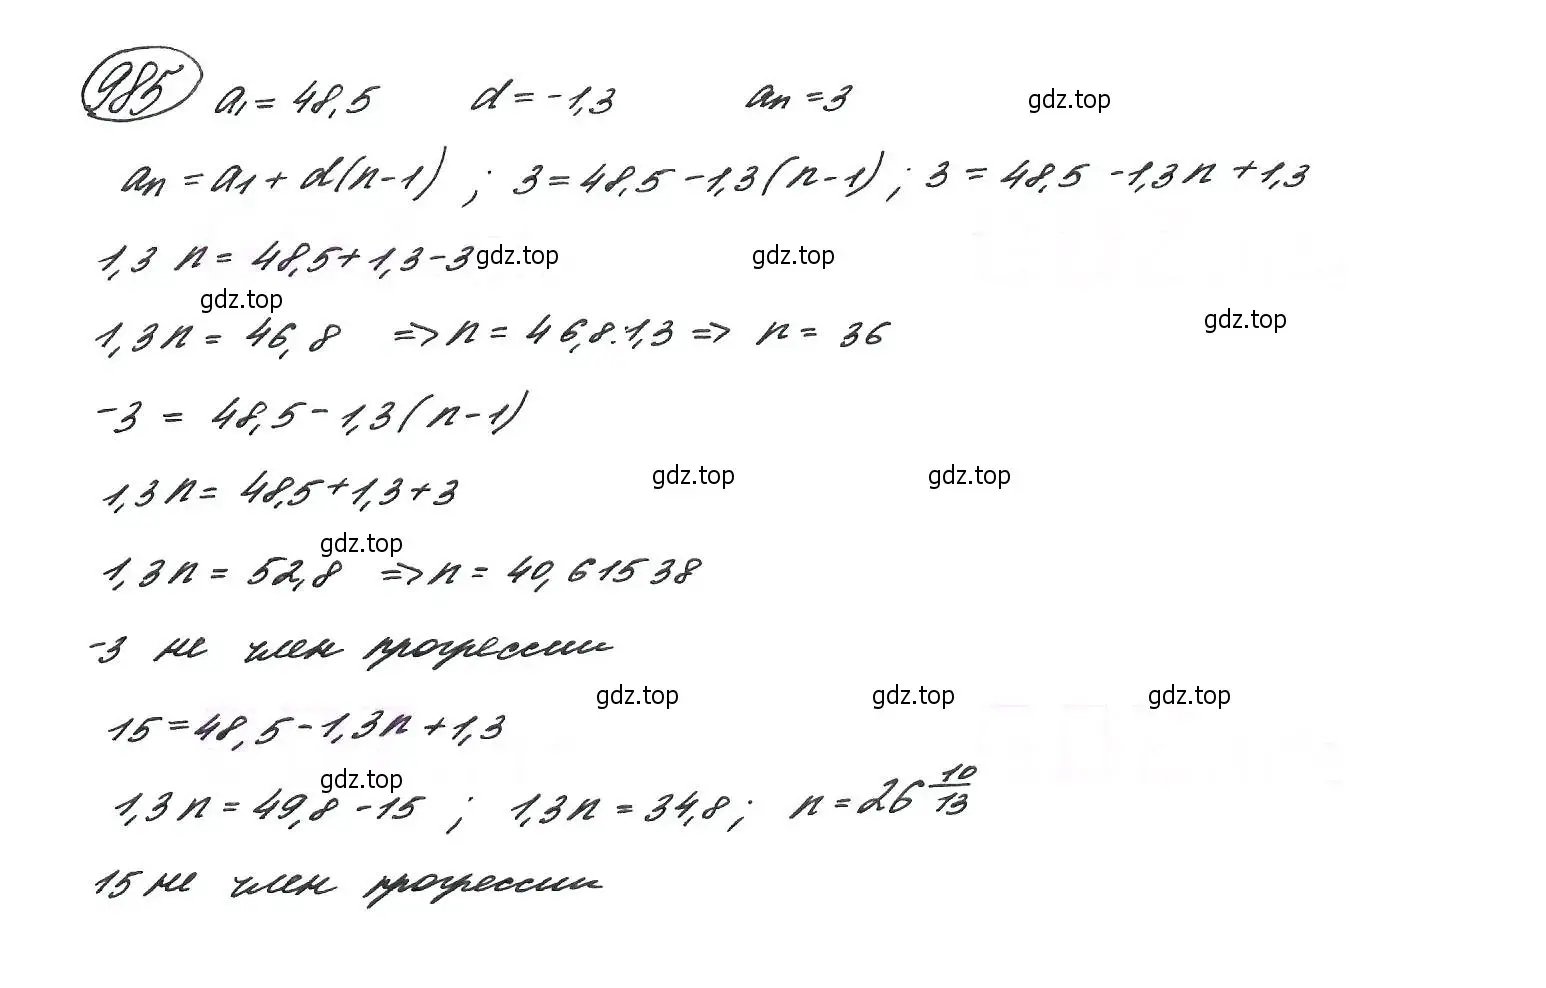 985 a₁ = 48,5 d = -1,3 aₙ = 3 gdz.top
aₙ = a₁ + d(n-1) ; 3 = 48,5 - 1,3(n-1) ; 3 = 48,5 - 1,3n + 1,3
1,3 n = 48,5 + 1,3 - 3 gdz.top gdz.top
gdz.top
1,3n = 46,8 => n = 46,8:1,3 => n = 36 gdz.top
-3 = 48,5 - 1,3(n-1)
gdz.top gdz.top
1,3n = 48,5 + 1,3 + 3
gdz.top
1,3n = 52,8 => n = 40,61538
-3 не член прогрессии
gdz.top gdz.top gdz.top
15 = 48,5 - 1,3n + 1,3
gdz.top
1,3n = 49,8 - 15 ; 1,3n = 34,8 ; n = 26 10/13
15 не член прогрессии